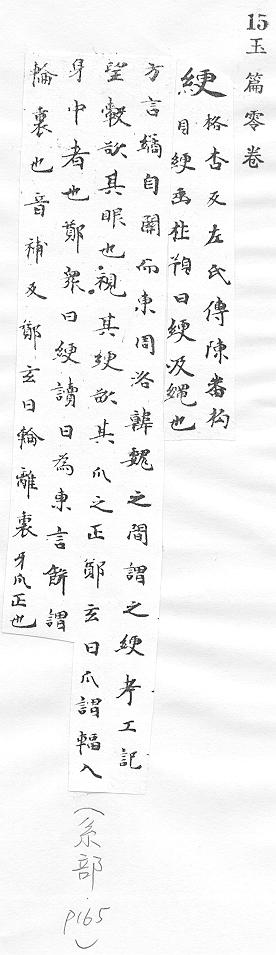 15 玉篇零卷
綆 格杏反左氏傳陳畚挶
具綆缶杜預曰綆汲繩也
方言繘自關而東周洛韓魏之間謂之綆考工記
望轂欲其眼也視其綆欲其爪之正鄭玄曰爪謂輻入
牙中者也鄭衆曰綆讀曰為東言餅謂
輪裏也音補反鄭玄曰輪離裏牙爪正也
(系部 p165)